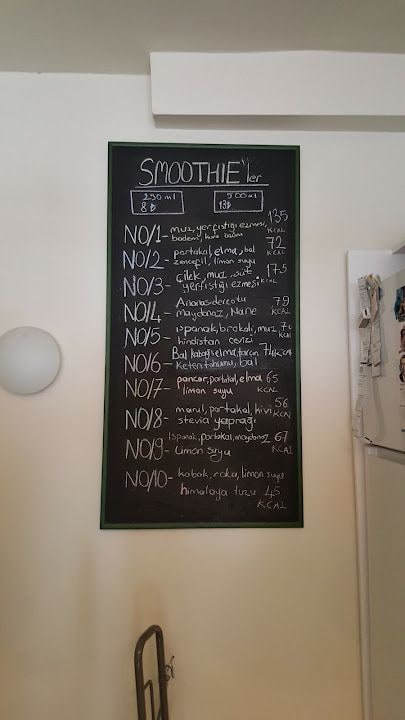 SMOOTHIE'ler
250 ml 500 ml
8₺ 13₺
NO/1- muz, yerfıstığı ezmesi, 135
badem, KCAL
NO/2- portakal, elma, bal 72
zencefil, limon suyu KCAL
NO/3- çilek, muz, süt 175
yerfıstığı ezmesi KCAL
NO/4- Ananas dereotu 79
Maydanoz, Nane KCAL
NO/5- ıspanak, brokoli, muz
hindistan cevizi KCAL
NO/6- Bal kabağı elma, tarçın 74 KCAL
Keten tohumu, bal
NO/7- pancar, portakal, elma 65
limon suyu KCAL
NO/8- marul, portakal, kivi 56
stevia yaprağı KCAL
NO/9- Ispanak, portakal, maydanoz 67
Limon suyu KCAL
NO/10- kabak, roka, limon suyu
himalaya tuzu 45
KCAL